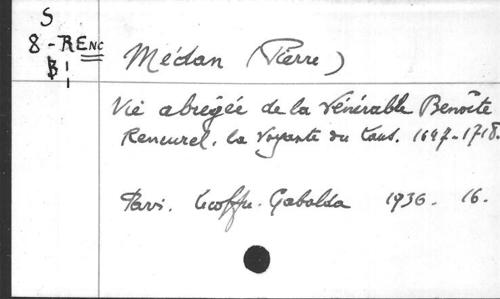 S
8 - RENC
B 1
1
Médan (Pierre)
Vie abrégée de la Vénérable Benoîte
Rencurel, la Voyante du Laus. 1647-1718.
Paris. Lecoffre. Gabalda 1936. 16.